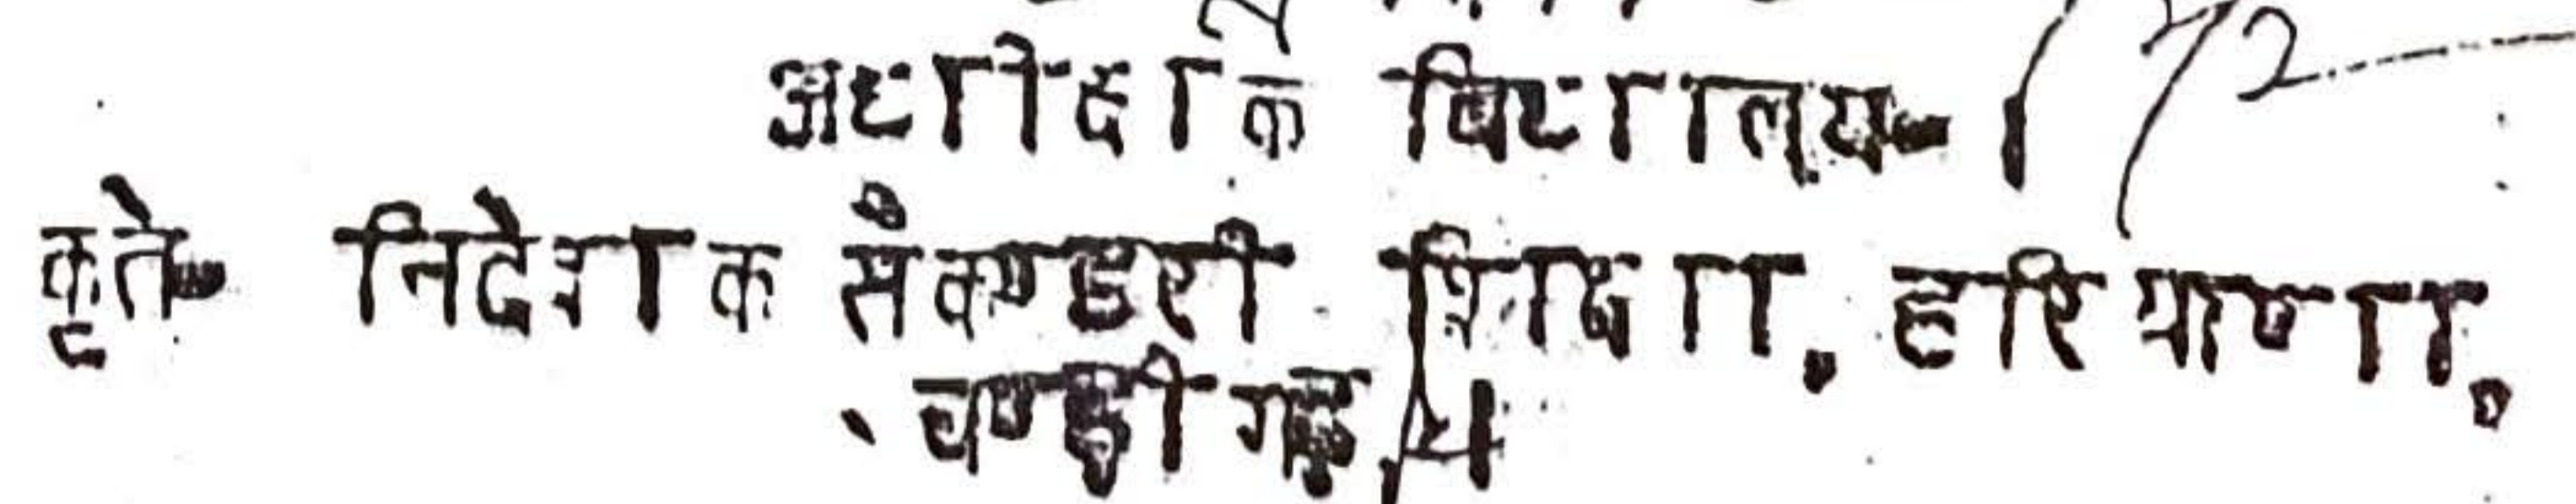 अधीक्षक विद्यालय-।
कृते- निदेशक सैकण्डरी शिक्षा, हरियाणा,
चण्डीगढ़।